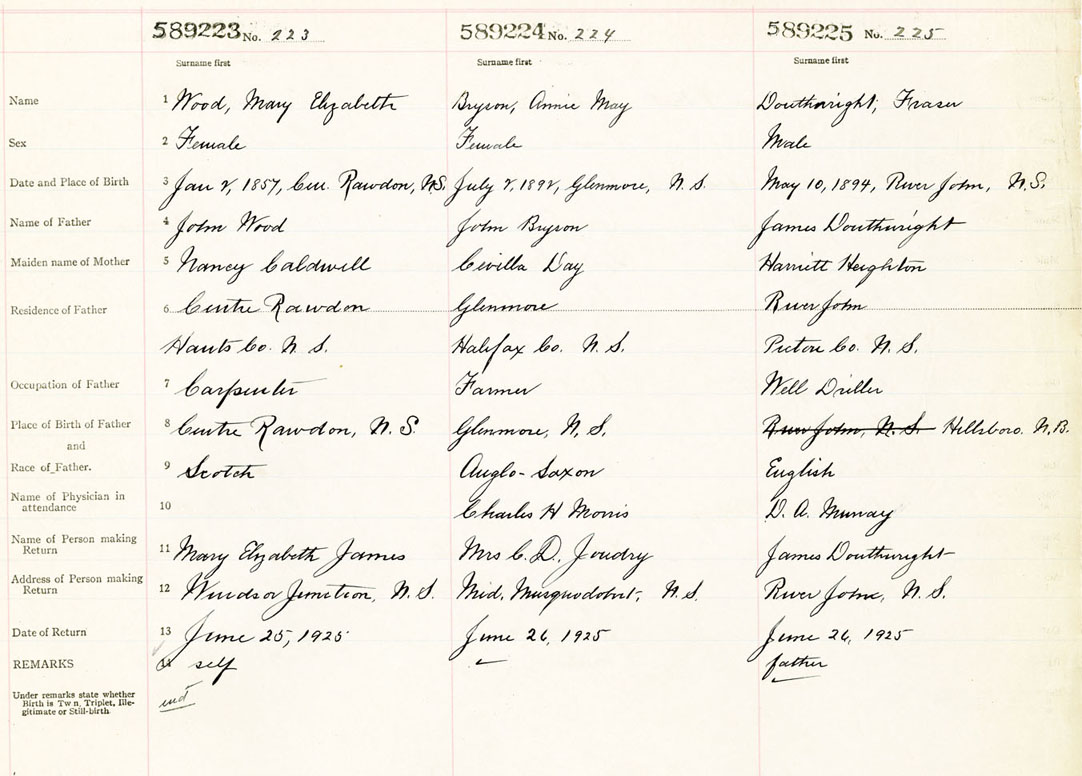 589223 No. 223 589224 No. 224 589225 No. 225
Surname first Surname first Surname first
Name 1 Wood, Mary Elizabeth Bryson, Annie May Douthwright, Fraser
Sex 2 Female Female Male
Date and Place of Birth 3 Jan 2, 1857, Cen. Rawdon, N.S. July 2, 1892, Glenmore, N.S. May 10, 1894, River John, N.S.
Name of Father 4 John Wood John Bryson James Douthwright
Maiden name of Mother 5 Nancy Caldwell Civilla Day Harriett Heighton
Residence of Father 6 Centre Rawdon Glenmore River John
Hants Co. N.S. Halifax Co. N.S. Pictou Co. N.S.
Occupation of Father 7 Carpenter Farmer Well Driller
Place of Birth of Father 8 Centre Rawdon, N.S. Glenmore, N.S. River John, N.S. Hillsboro. N.B.
and
Race of Father. 9 Scotch Anglo-Saxon English
Name of Physician in
attendance 10 Charles H Morris D. A. Murray
Name of Person making
Return 11 Mary Elizabeth James Mrs C. D. Joudry James Douthwright
Address of Person making
Return 12 Windsor Junction, N.S. Mid. Musquodobit, N.S. River John, N.S.
Date of Return 13 June 25, 1925 June 26, 1925 June 26, 1925
REMARKS 14 self father
Under remarks state whether
Birth is Twn, Triplet, Ille-
gitimate or Still-birth